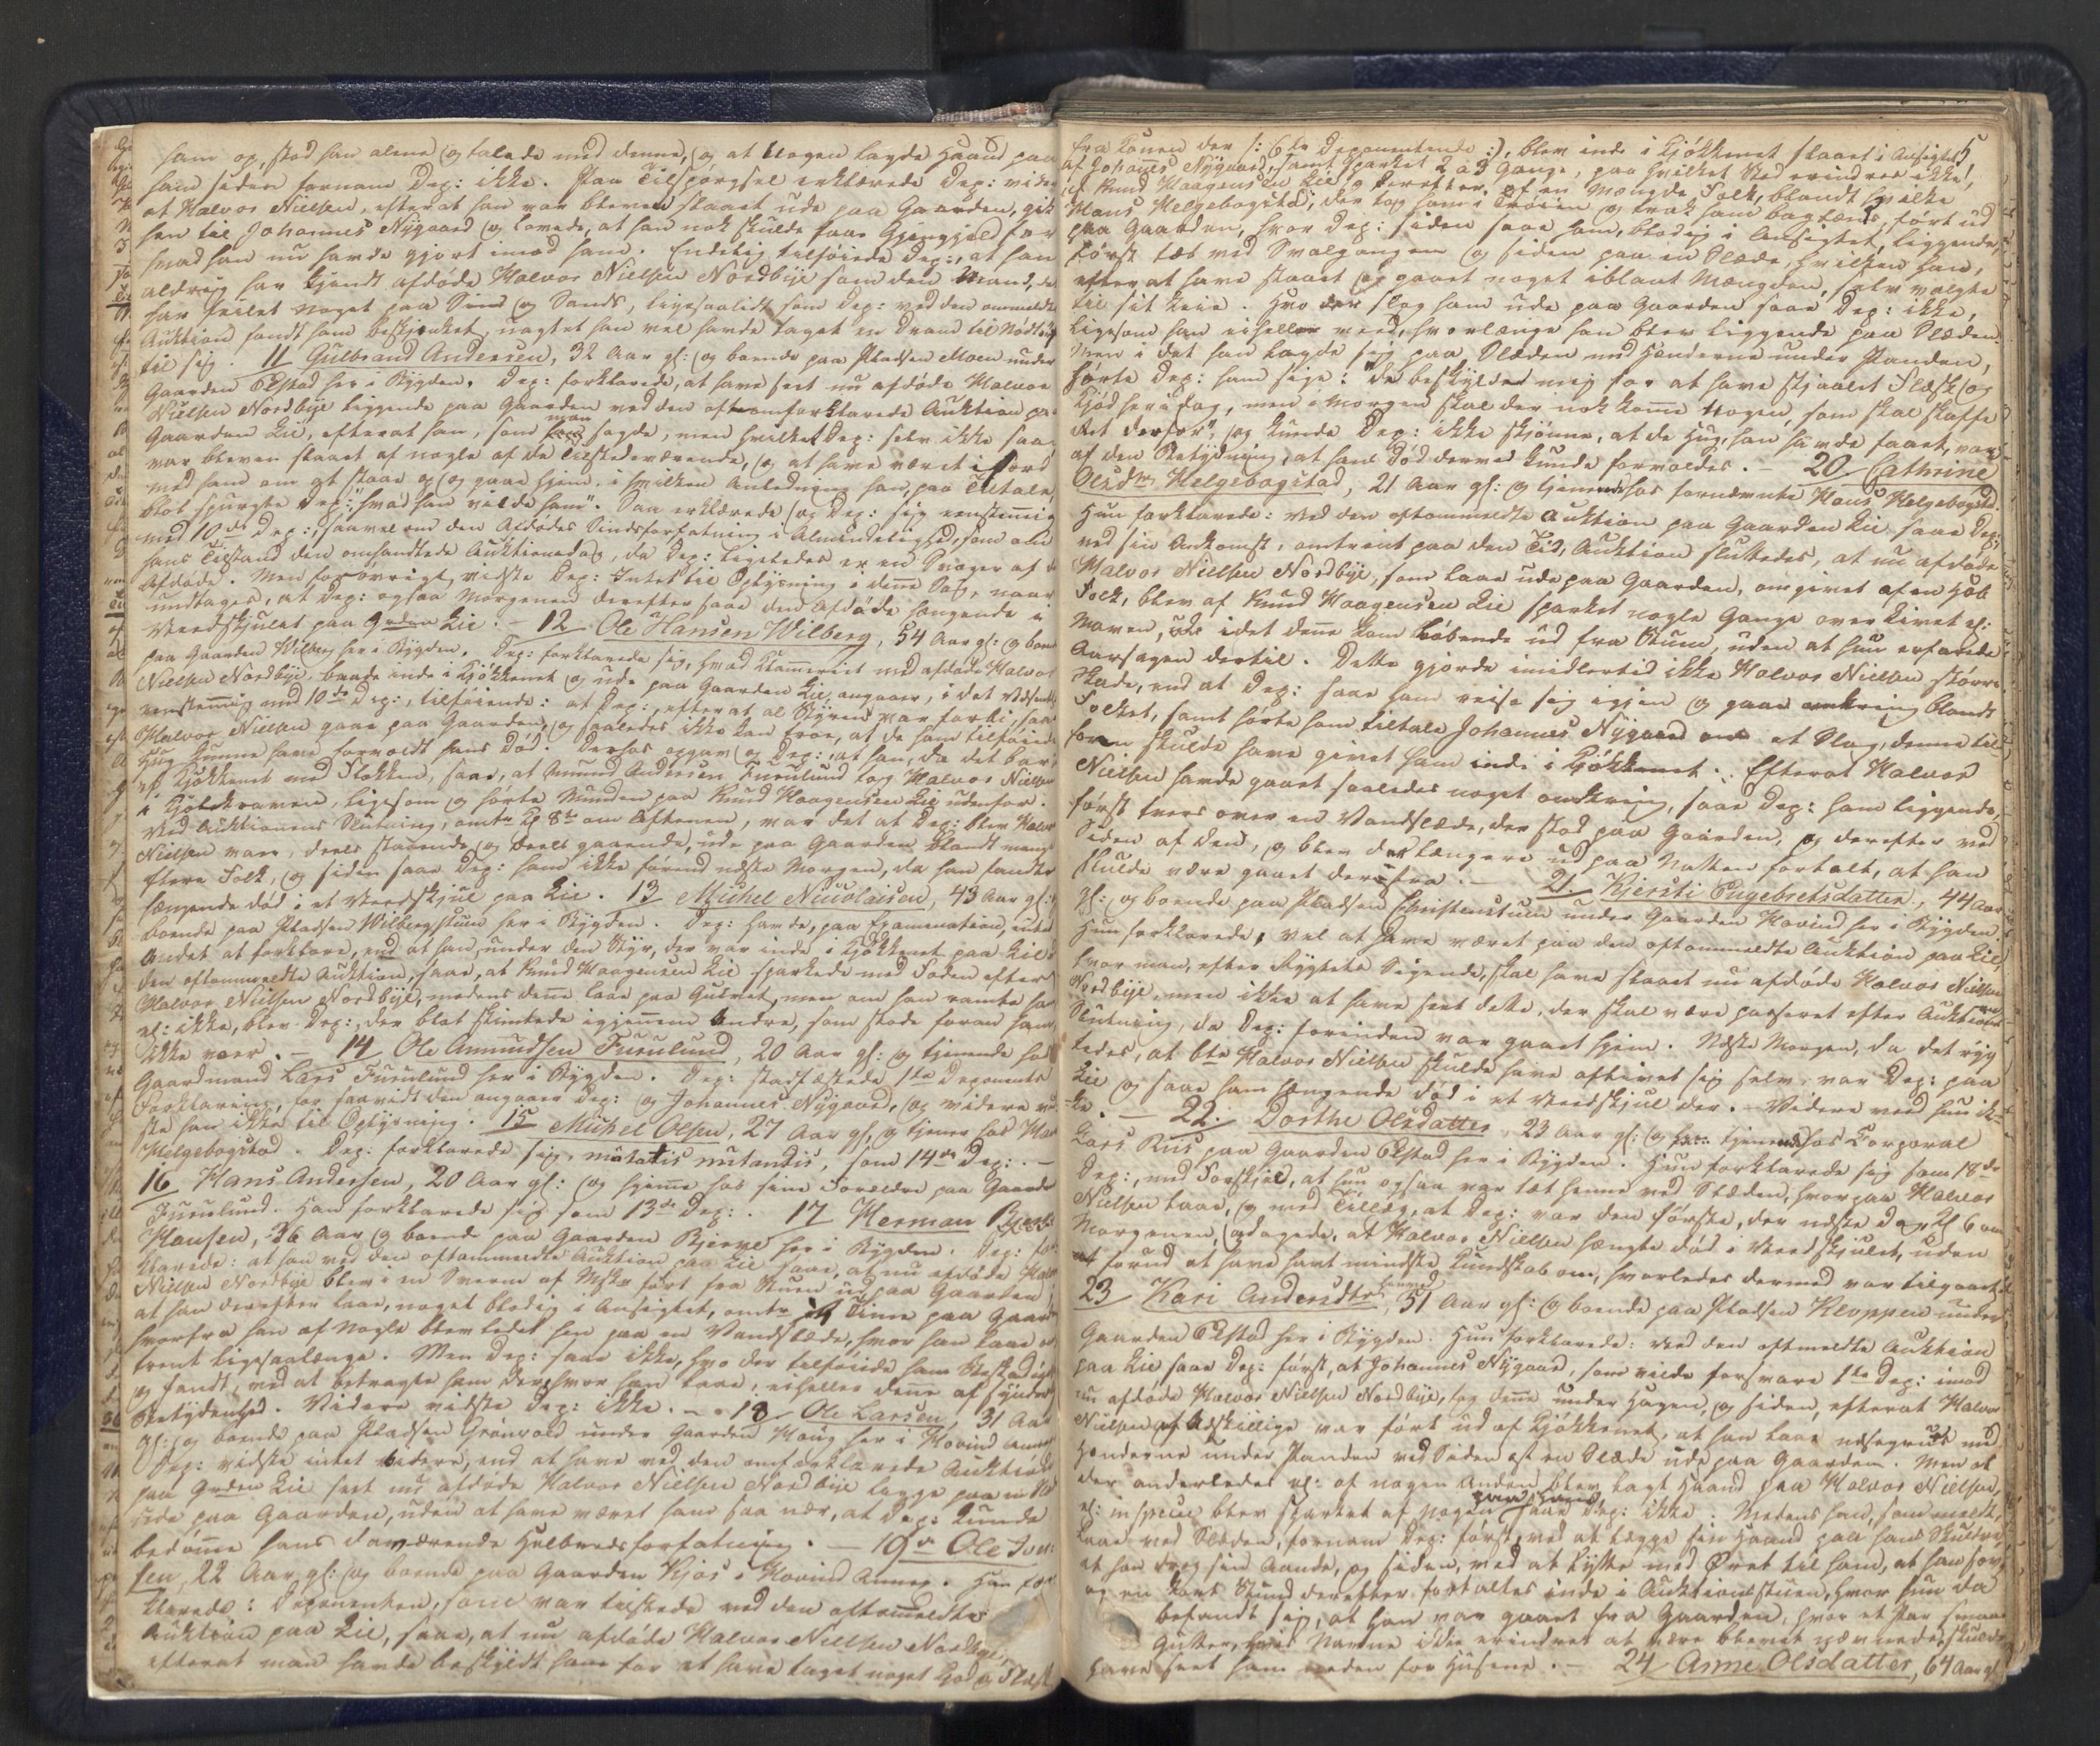 ham op, stod han alene og talede med denne, og at Nogen lagde Haand paa
ham siden fornam Dep: ikke. Paa Tilspørgsel erklærede Dep: videre
at Halvor Nielsen, efterat han var bleven slaaet ude paa Gaarden, gik
hen til Johannes Nygaard og lovede, at han nok skulde faae Gjengjeld for
hvad han nu havde gjort imod ham. Endelig tilføiede Dep:, at han
aldrig har kjendt afdøde Halvor Nielsen Nordbye som den Mand, der
har feilet noget paa Sind og Sands, ligesaalidt som Dep: ved den ommeldte
Auktion fandt ham beskjenket, uagtet han vel havde taget en Dram til Nødtørft
til sig. 11 Gulbrand Andersen, 32 Aar gl: og boende paa Pladsen Moen under
Gaarden Ekstad her i Bygden. Dep: forklarede, at have seet nu afdøde Halvor
Nielsen Nordbye liggende paa Gaarden ved den oftomforklarede Auktion paa
Gaarden Lie, efterat han, som man sagde, men hvilket Dep: selv ikke saae,
var bleven slaaet af nogle af de Tilstedeværende, og at have været i Færd
med ham om at staae op og gaae hjem, i hvilken Anledning han, paa Tiltale,
blot spurgte Dep: "hvad han vilde ham". Saa erklærede og Dep: sig eenstemmig
med 10de Dep:, saavel om den Afdødes Sindsforfatning i Almindelighed, som om
hans Tilstand den omhandlede Auktionsdag, da Dep: ligeledes er en Svoger af den
Afdøde. Men forøvrigt vidste Dep: Intet til Oplysning i denne Sag, naar
undtages, at Dep: ogsaa Morgenen derefter saae den Afdøde hængende i
Veedskjulet paa Gaarden Lie. - 12 Ole Hansen Wilberg, 54 Aar gl: og boende
paa Gaarden Wilberg her i Bygden. Dep: forklarede sig, hvad Klammeriet med afdøde Halvor
Nielsen Nordbye, baade inde i Kjøkkenet og ude paa Gaarden Lie angaaer, i det Væsentlige
eenstemmig med 10de Dep:, tilføiende: at Dep:, efterat al Styren var forbi, saae
Halvor Nielsen gaae paa Gaarden, og saaledes ikke kan troe, at de ham tilføiede
Hug kunne have forvoldt hans Død. Derhos opgav og Dep: at han, da det bar
af Kjøkkenet med Flokken, saae, at Amund Andersen Furulund tog Halvor Nielsen
i Kjolekraven, ligesom og hørte Munden paa Knud Haagensen Lie udenfor.
Ved Auktionens Slutning, omtr Kl 8te om Aftenen, var det at Dep: blev Halvor
Nielsen vaer, deels staaende og deels gaaende, ude paa Gaarden blandt mange
flere Folk, og siden saae Dep: ham ikke førend næste Morgen, da han fandtes
hængende død i et Veedskjul paa Lie. 13 Michel Nicolaisen, 43 Aar gl: og
boende paa Pladsen Wilbergstuen her i Bygden. Dep: havde, paa Examination, intet
Andet at forklare, end at han, under den Styr, der var inde i Kjøkkenet paa Lie
den oftommeldte Auktion, saae, at Knud Haagensen Lie sparkede med Foden efter
Halvor Nielsen Nordbye, medens denne laae paa Gulvet, men om han ramte ham
el: ikke, blev Dep:, der blot skimtede igjennem Andre, som stode foran ham,
ikke vaer. - 14 Ole Amundsen Furulund, 20 Aar gl: og tjenende hos
Gaardmand Lars Furulund her i Bygden. Dep: stadfæstede 1ste Deponents
Forklaring, for saavidt den angaaer Dep: og Johannes Nygaard, og videre vid-
ste han ikke til Oplysning. 15 Michel Olsen, 27 Aar gl, og tjener hos Hans
Helgebogstad. Dep: forklarede sig, mutatis mutandis, som 14de Dep: . -
16 Hans Andersen, 20 Aar gl: og hjemme hos sine Forældre paa Gaarden
Furulund. Han forklarede sig som 13de Dep: . 17 Herman Bjerke
Hansen, 36 Aar og boende paa Gaarden Bjerke her i Bygden. Dep: for-
klarede: at han ved den oftommeldte Auktion paa Lie saae, at nu afdøde Halvor
Nielsen Nordbye blev i en Sværm af Msker ført fra Stuen ud paa Gaarden,
at han derefter laae, noget blodig i Ansigtet, omtr 1/4 Time paa Gaarden
hvorfra han af Nogle blev ledet hen paa en Vandslæde, hvor han laae om-
trent ligesaalænge. Men Dep: saae ikke, hvo der tilføiede ham Beskadigelsen
og fandt, ved at betragte ham der, hvor han laae, eiheller denne af synderlig
Betydenhed. Videre vidste Dep: ikke. - 18 Ole Larsen, 31 Aar
gl: og boende paa Pladsen Grønvold under Gaarden Haug her i Hovind Annex.
Dep: vidste intet videre, end at have ved den omforklarede Auktion
paa Gaarden Lie seet nu afdøde Halvor Nielsen Nordbye ligge paa en Slæde
ude paa Gaarden, uden at have været ham saa nær, at Dep: kunde
bedømme hans daværende Helbredsforfatning. - 19de Ole Iver-
sen, 22 Aar gl: og boende paa Gaarden Kjos i Hovind Annex. Han for-
klarede: Deponenten, som var tilstede ved den oftommeldte
Auktion paa Lie, saae, at nu afdøde Halvor Nielsen Nordbye,
efterat man havde beskyldt ham for at have taget noget Kjød og Flesk
5
fra Konen der /: 6te Deponentinde :/, blev inde i Kjøkkenet slaaet i Ansigtet
af Johannes Nygaard, samt sparket 2 a 3 Gange, paa hvilket Sted erindres ikke,
af Knud Haagensen Lie, og derefter, af en Mængde Folk, blandt hvilke
Hans Helgebogstad, der tog ham i Trøien og trak ham baglænds, ført ud
paa Gaarden, hvor Dep: siden saae ham, blodig i Ansigtet, liggende,
først tæt ved Svalgangen og siden paa en Slæde, hvilken han,
efter at have staaet og gaaet noget iblant Mængden, selv valgte
til sit Leie. Hvo der slog ham ude paa Gaarden saae Dep: ikke,
ligesom han eiheller veed, hvorlænge han blev liggende paa Slæden.
Men i det han lagde sig paa Slæden med Hænderne under Panden,
hørte Dep: ham sige: "De beskylder mig for at have stjaalet Flesk og
Kjød her i Dag, men i Morgen skal der nok komme Nogen, som skal skaffe
Ret derfor", og kunde Dep: ikke skjønne, at de Hug, han havde faaet, var
af den Betydning, at hans Død derved kunde forvoldes. - 20 Cathrine
Olsdtr Helgebogstad, 21 Aar gl: og tjenende hos fornævnte Hans Helgebogstad.
Hun forklarede: Ved den oftommeldte Auktion paa Gaarden Lie saae Dep:,
ved sin Ankomst, omtrent paa den Tid, Auktion sluttedes, at nu afdøde
Halvor Nielsen Nordbye, som laae ude paa Gaarden, omgivet af en Hob
Folk, blev af Knud Haagensen Lie sparket nogle Gange over Livet el:
Maven, idet denne kom løbende ud fra Stuen, uden at hun erfarede
Aarsagen dertil. Dette gjorde imidlertid ikke Halvor Nielsen større
Skade, end at Dep: saae ham reise sig igjen og gaae omkring blandt
Folket, samt hørte ham tiltale Johannes Nygaard om et Slag, denne til-
forn skulde have givet ham inde i Kjøkkenet. Efterat Halvor
Nielsen havde gaaet saaledes noget omkring, saae Dep: ham liggende,
først tvers over en Vandslæde, der stod paa Gaarden, og derefter ved
Siden af den, og blev det længere ud paa Natten fortalt, at han
skulde være gaaet derifra. - 21. Kjersti Engebretsdatter, 44 Aar
gl: og boende paa Pladsen Christenstuen under Gaarden Hovind her i Bygden.
Hun forklarede, vel at have været paa den oftommeldte Auktion paa Lie,
hvor man, efter Rygtets Sigende, skal have slaaet nu afdøde Halvor Nielsen
Nordbye, men ikke at have seet dette, der skal være passeret efter Auktionens
Slutning, da Dep: forinden var gaaet hjem. Næste Morgen, da det ryg-
tedes, at bte Halvor Nielsen skulde have aflivet sig selv, var Dep: paa
Lie og saae ham hængende død i et Veedskjul der. - Videre veed hun ik-
ke. - 22. Dorthe Olsdatter, 23 Aar gl: og tjenende hos Corporal
Lars Riis paa Gaarden Ekstad her i Bygden. Hun forklarede sig som 18de
Dep:, med Forskjel, at hun ogsaa var tæt henne ved Slæden, hvorpaa Halvor
Nielsen laae, og med Tillæg, at Dep: var den første, der næste Dag Kl 6 om
Morgenen, opdagede, at Halvor Nielsen hængte død i Veedskjulet, uden
forud at have havt mindste Kundskab om, hvorledes dermed var tilgaaet.
23 Kari Andersdtr, 51 Aar gl: og boende paa Pladsen Kloppen under
Gaarden Ekstad her i Bygden. Hun forklarede: Ved den oftmeldte Auktion
paa Lie saae Dep: først, at Johannes Nygaard, som vilde forsvare 1ste Dep: imod
nu afdøde Halvor Nielsen Nordbye, tog denne under Hagen, og siden, efterat Halvor
Nielsen af Adskillige var ført ud af Kjøkkenet, at han laae næsegruus med
Hænderne under Panden ved Siden af en Slæde ude paa Gaarden. Men at
der anderledes el: af nogen Anden blev lagt Haand paa Halvor Nielsen,
el: in specie blev sparket af Nogen paa ham saae Dep: ikke. Medens han, som meldt,
laae ved Slæden, fornam Dep: først, ved at lægge sin Haand paa hans Skuldre,
at han drog sin Aande, og siden, ved at lytte med Øret til ham, at han sov,
og en kort Stund derefter fortaltes inde i Auktionsstuen, hvor hun da
befandt sig, at han var gaaet fra Gaarden, hvor et Par smaae
Gutter, hvis Navne ikke erindres at være blevet nævnede, skulde
have seet ham neden for Husene. - 24 Anne Olsdatter, 64 Aar gl: